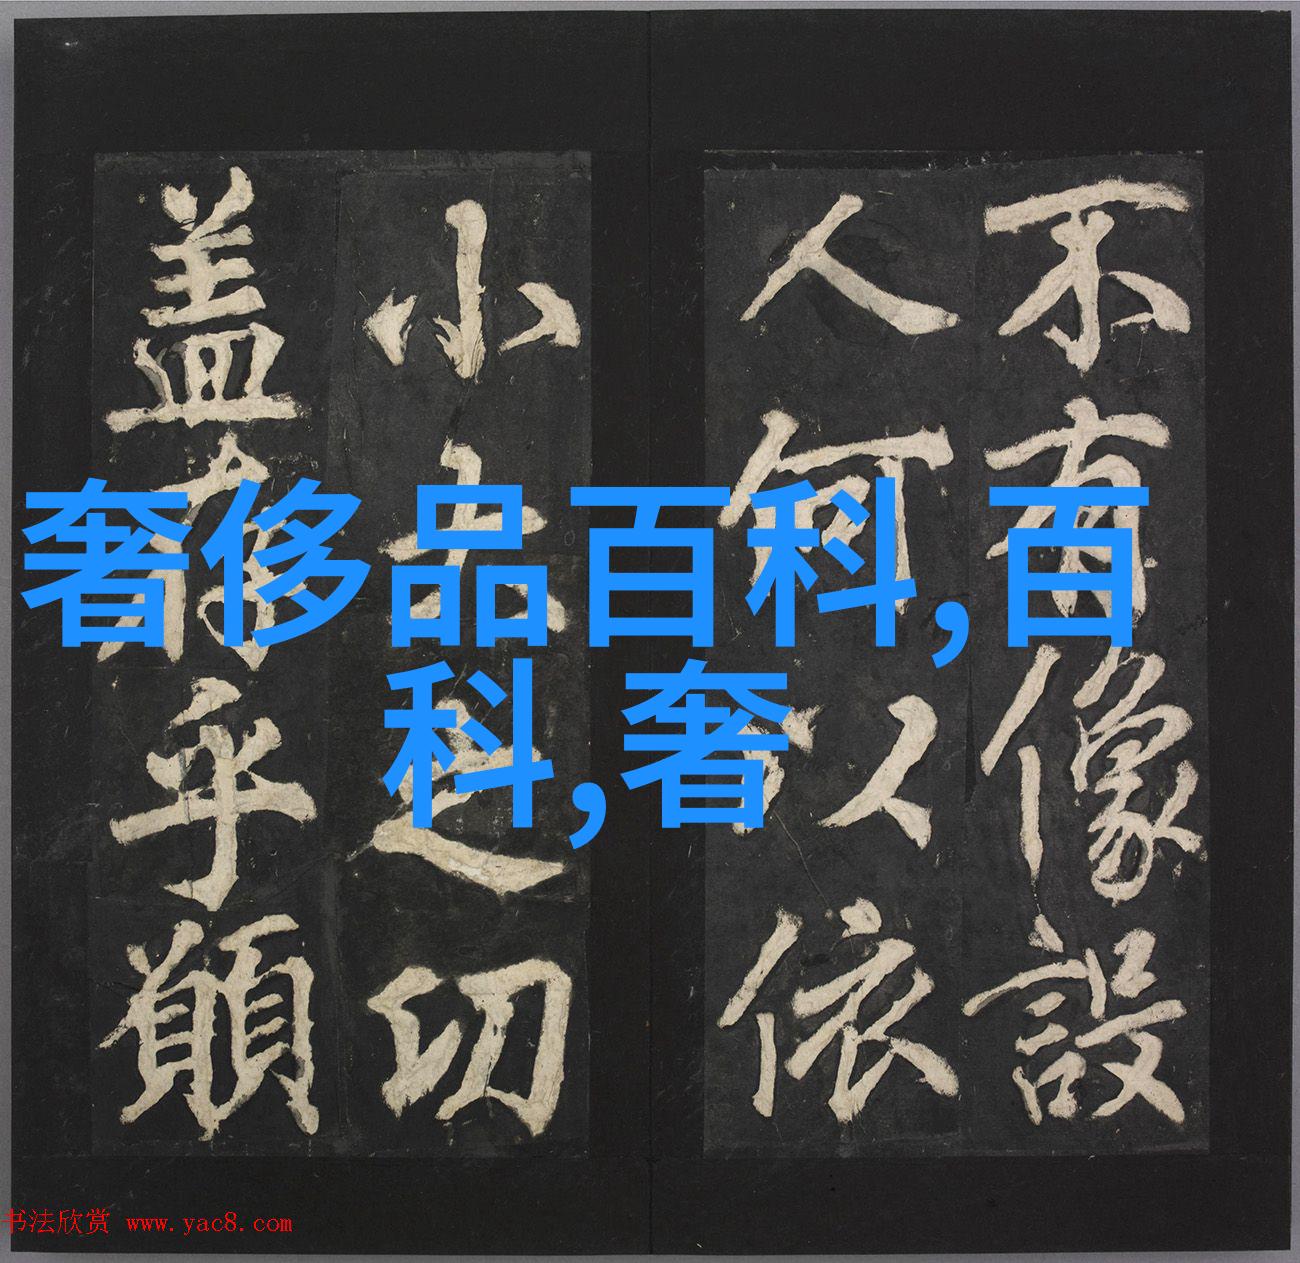 不有像設
人何以依
小大之
盖存乎願
奢侈品百科,百
科,奢
书法欣赏 www.yac8.com